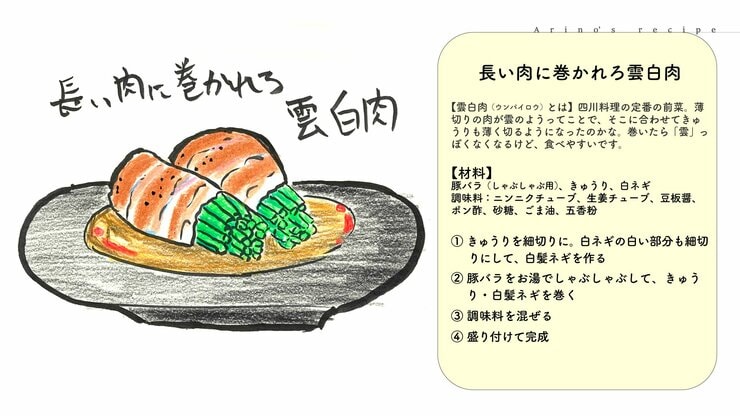 Arino's recipe
長い肉に巻かれろ
雲白肉
長い肉に巻かれろ雲白肉
【雲白肉（ウンパイロウ）とは】四川料理の定番の前菜。薄
切りの肉が雲のようってことで、そこに合わせてきゅ
うりも薄く切るようになったのかな。巻いたら「雲」っ
ぽくなくなるけど、食べやすいです。
【材料】
豚バラ（しゃぶしゃぶ用）、きゅうり、白ネギ
調味料：ニンニクチューブ、生姜チューブ、豆板醤、
ポン酢、砂糖、ごま油、五香粉
① きゅうりを細切りに。白ネギの白い部分も細切
りにして、白髪ネギを作る
② 豚バラをお湯でしゃぶしゃぶして、きゅう
り・白髪ネギを巻く
③ 調味料を混ぜる
④ 盛り付けて完成